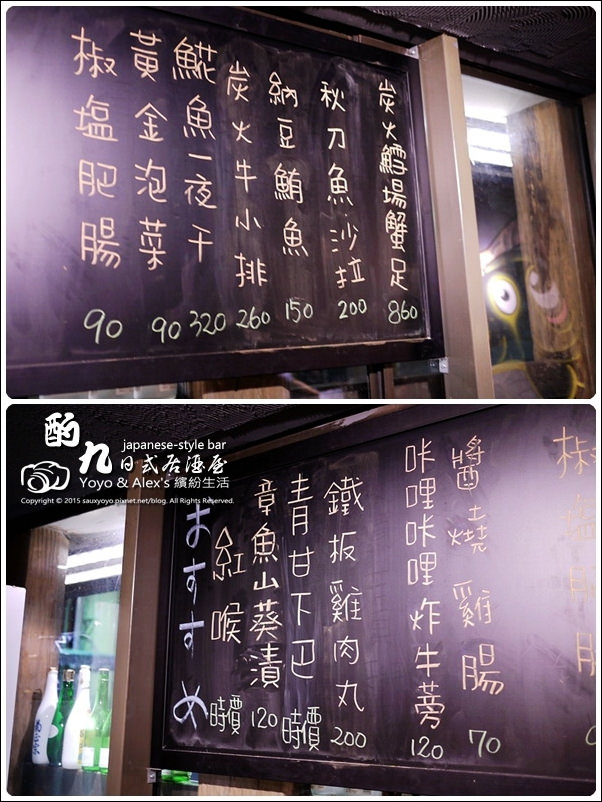 炭火鱈場蟹足 860
秋刀魚沙拉 200
納豆鮪魚 150
炭火牛小排 260
鯤魚一夜干 320
黃金泡菜 90
椒塩肥腸 90
酌九日式居酒屋
japanese-style bar
Yoyo & Alex's 繽紛生活
Copyright © 2015 sauxyoyo.pixnet.net/blog. All Rights Reserved.
椒塩肥腸
醬燒雞腸 70
咔哩咔哩炸牛蒡 120
鐵板雞肉丸 200
青甘下巴 時價
章魚山葵漬 120
紅喉 時價
おすすめ